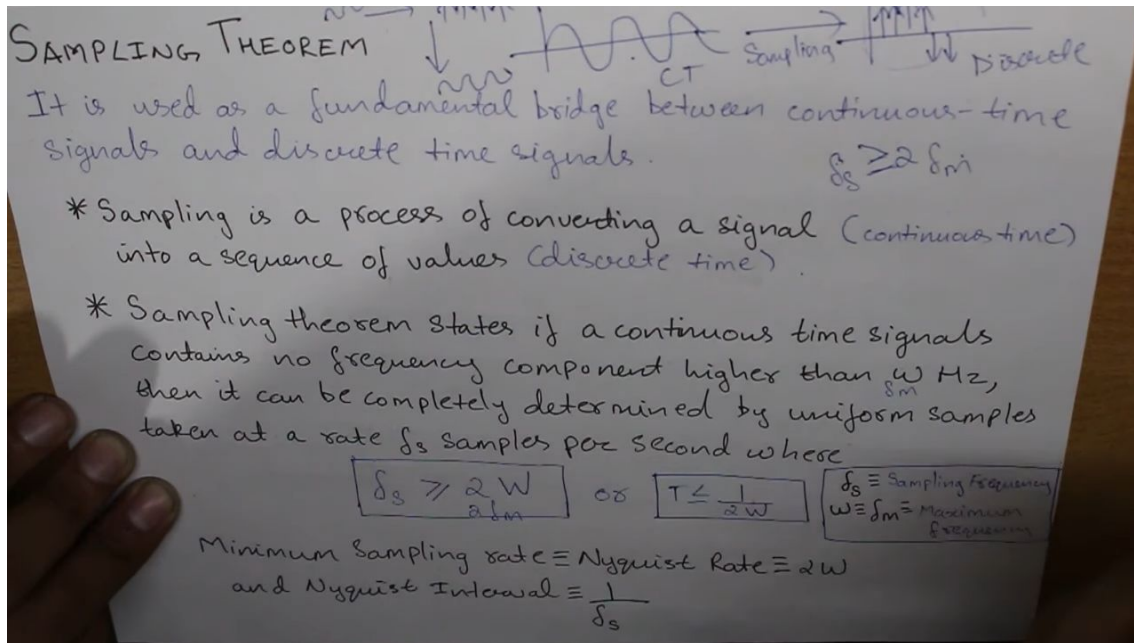 SAMPLING THEOREM
CT
Sampling
Discrete
It is used as a fundamental bridge between continuous-time
signals and discrete time signals.
fs ≥ 2 fm
* Sampling is a process of converting a signal (continuous time)
into a sequence of values (discrete time).
* Sampling theorem states if a continuous time signals
contains no frequency component higher than W Hz,
fm
then it can be completely determined by uniform samples
taken at a rate fs samples per second where
fs ≥ 2 W
2fm
or
T ≤ 1/2W
fs ≡ Sampling Frequency
W ≡ fm ≡ Maximum
frequency
Minimum Sampling rate ≡ Nyquist Rate ≡ 2W
and Nyquist Interval ≡ 1/fs